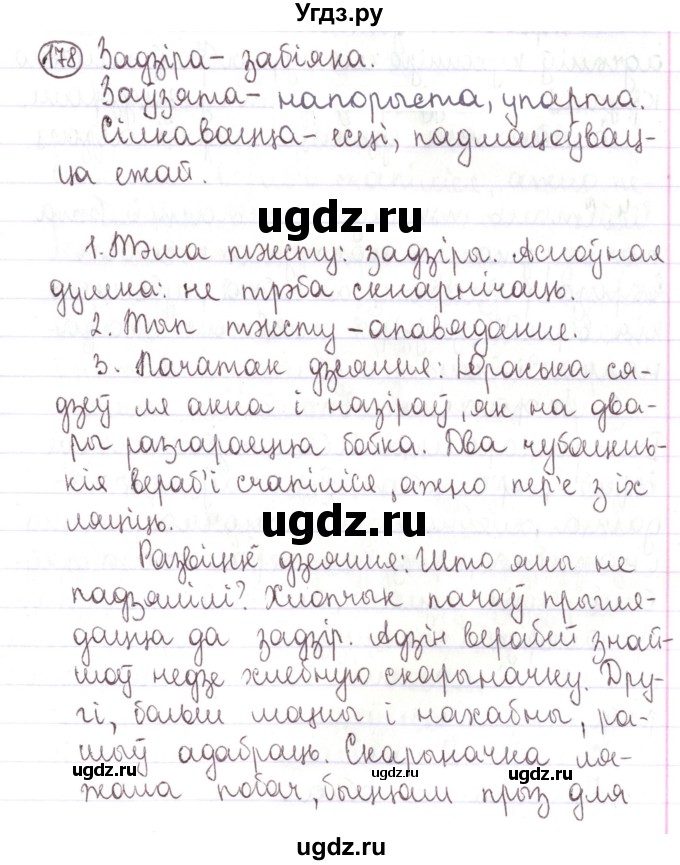 Угдз.ру
178 Задзіра – забіяка.
Заўзята – напорыста, упарта.
Сілкавацца – есці, падмацоўвац-
ца ежай.
ugdz.ru
1. Тэма тэксту: задзіры. Асноўная
думка: не трэба сквапнічаць.
2. Тып тэксту – апавяданне.
3. Пачатак дзеяння: Юраська ся-
дзеў ля акна і назіраў, як на два-
ры разгараецца бойка. Два чубацень-
кія вераб'і счапіліся, ажно пер'е з іх
ляціць.
ugdz.ru
Развіццё дзеяння: Што яны не
падзялілі? Хлопчык пачаў прыгля-
дацца да задзір. Адзін верабей знай-
шоў недзе хлебную скарыначку. Дру-
гі, больш моцны і нахабны, ра-
шыў адабраць. Скарыначка ля-
ugdz.ru ugdz.ru ugdz.ru
жала побач, быццам прыз для
ugdz.ru